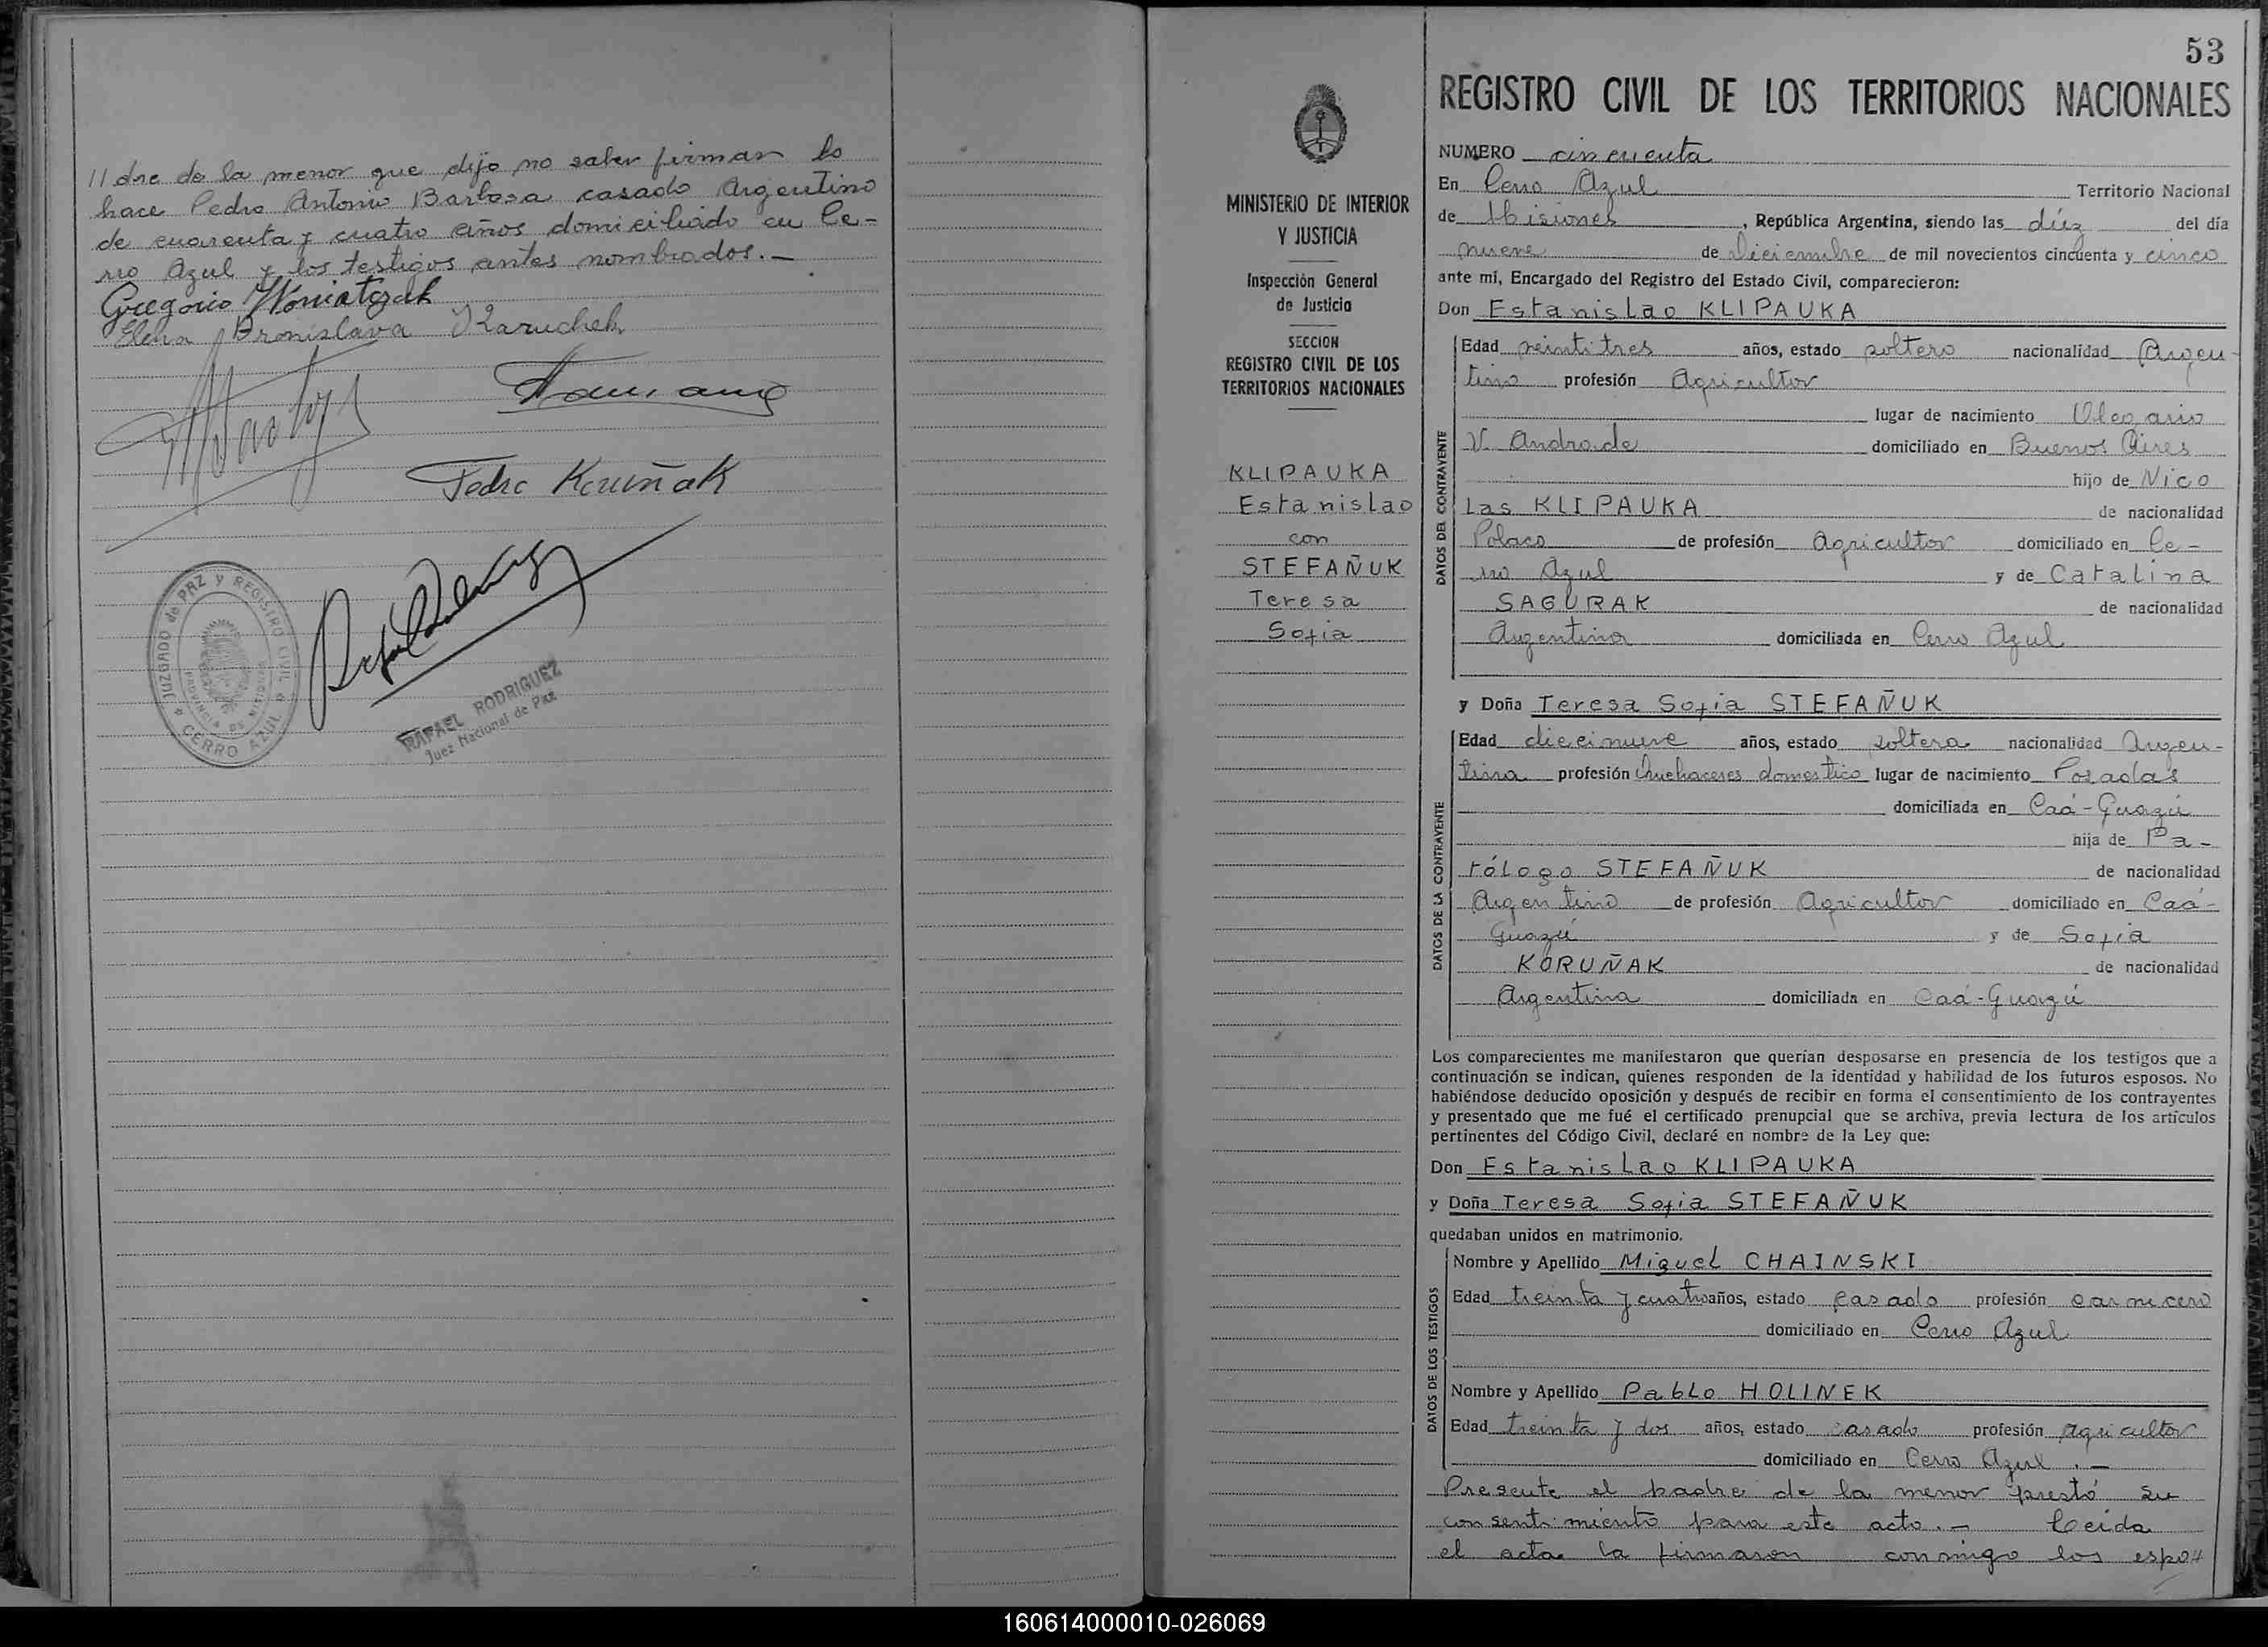 //dre de la menor que dijo no saber firmar lo
hace Pedro Antonio Barbosa casado Argentino
de cuarenta y cuatro años domiciliado en Ce-
rro Azul y los testigos antes nombrados.-
Gregorio Woniatczuk
Elena Bronislava Karuchek
Pedro Koruñak
JUZGADO de PAZ y REGISTRO CIVIL
PROVINCIA DE MISIONES
CERRO AZUL
RAFAEL RODRIGUEZ
Juez Nacional de Paz
53
MINISTERIO DE INTERIOR
Y JUSTICIA
Inspección General
de Justicia
SECCION
REGISTRO CIVIL DE LOS
TERRITORIOS NACIONALES
KLIPAUKA
Estanislao
con
STEFAÑUK
Teresa
Sofia
REGISTRO CIVIL DE LOS TERRITORIOS NACIONALES
NUMERO cincuenta
En Cerro Azul Territorio Nacional
de Misiones, República Argentina, siendo las diéz del día
nueve de Diciembre de mil novecientos cincuenta y cinco
ante mí, Encargado del Registro del Estado Civil, comparecieron:
Don Estanislao KLIPAUKA
DATOS DEL CONTRAYENTE
Edad veintitres años, estado soltero nacionalidad Argen-
tino profesión Agricultor
lugar de nacimiento Olegario
V. Andrade domiciliado en Buenos Aires
hijo de Nico
Las KLIPAUKA de nacionalidad
Polaco de profesión Agricultor domiciliado en Ce-
rro Azul y de Catalina
SAGURAK de nacionalidad
Argentina domiciliada en Cerro Azul
y Doña Teresa Sofia STEFAÑUK
DATOS DE LA CONTRAYENTE
Edad diecinueve años, estado soltera nacionalidad Argen-
tina profesión Quehaceres domestico lugar de nacimiento Posadas
domiciliada en Caá-Guazú
hija de Pa-
tólogo STEFAÑUK de nacionalidad
Argentino de profesión Agricultor domiciliado en Caá-
Guazú y de Sofia
KORUÑAK de nacionalidad
Argentina domiciliada en Caá-Guazú
Los comparecientes me manifestaron que querían desposarse en presencia de los testigos que a
continuación se indican, quienes responden de la identidad y habilidad de los futuros esposos. No
habiéndose deducido oposición y después de recibir en forma el consentimiento de los contrayentes
y presentado que me fué el certificado prenupcial que se archiva, previa lectura de los artículos
pertinentes del Código Civil, declaré en nombre de la Ley que:
Don Estanislao KLIPAUKA
y Doña Teresa Sofia STEFAÑUK
quedaban unidos en matrimonio.
DATOS DE LOS TESTIGOS
Nombre y Apellido Miguel CHAINSKI
Edad treinta y cuatro años, estado casado profesión carnicero
domiciliado en Cerro Azul
Nombre y Apellido Pablo HOLINEK
Edad treinta y dos años, estado casado profesión agricultor
domiciliado en Cerro Azul.-
Presente el padre de la menor prestó su
consentimiento para este acto.- Leida
el acta la firmaron conmigo los espo//
160614000010-026069